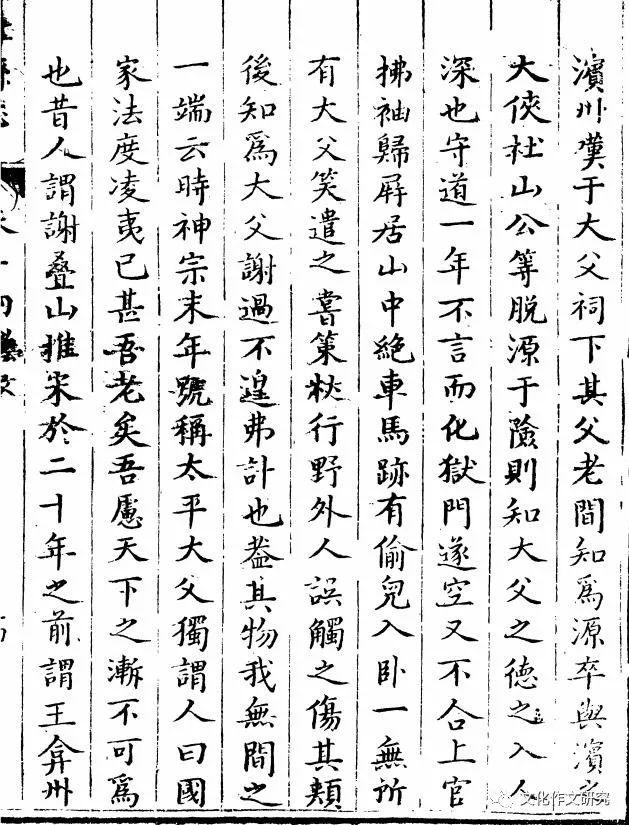 濱州嘆于大父祠下其父老間知爲源卒與濱之
大俠杜山公等脫源于險則知大父之德之入人
深也守道一年不言而化獄門遂空又不合上官
拂袖歸屏居山中絕車馬跡有偷兒入卧一無所
有大父笑遣之嘗策杖行野外人誤觸之傷其頰
後知爲大父謝過不遑弗計也葢其物我無間之
一端云時神宗末年號稱太平大父獨謂人曰國
家法度凌夷已甚吾老矣吾慮天下之漸不可爲
也昔人謂謝叠山推宋於二十年之前謂王弇州
文化作文研究